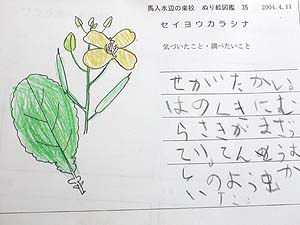 馬入水辺の楽校 ぬり絵図鑑 35 2004.4.11
セイヨウカラシナ
気づいたこと・調べたいこと
せがたかい。
はのくきにむ
らさきがまざっ
てい。てんとうむ
のよう